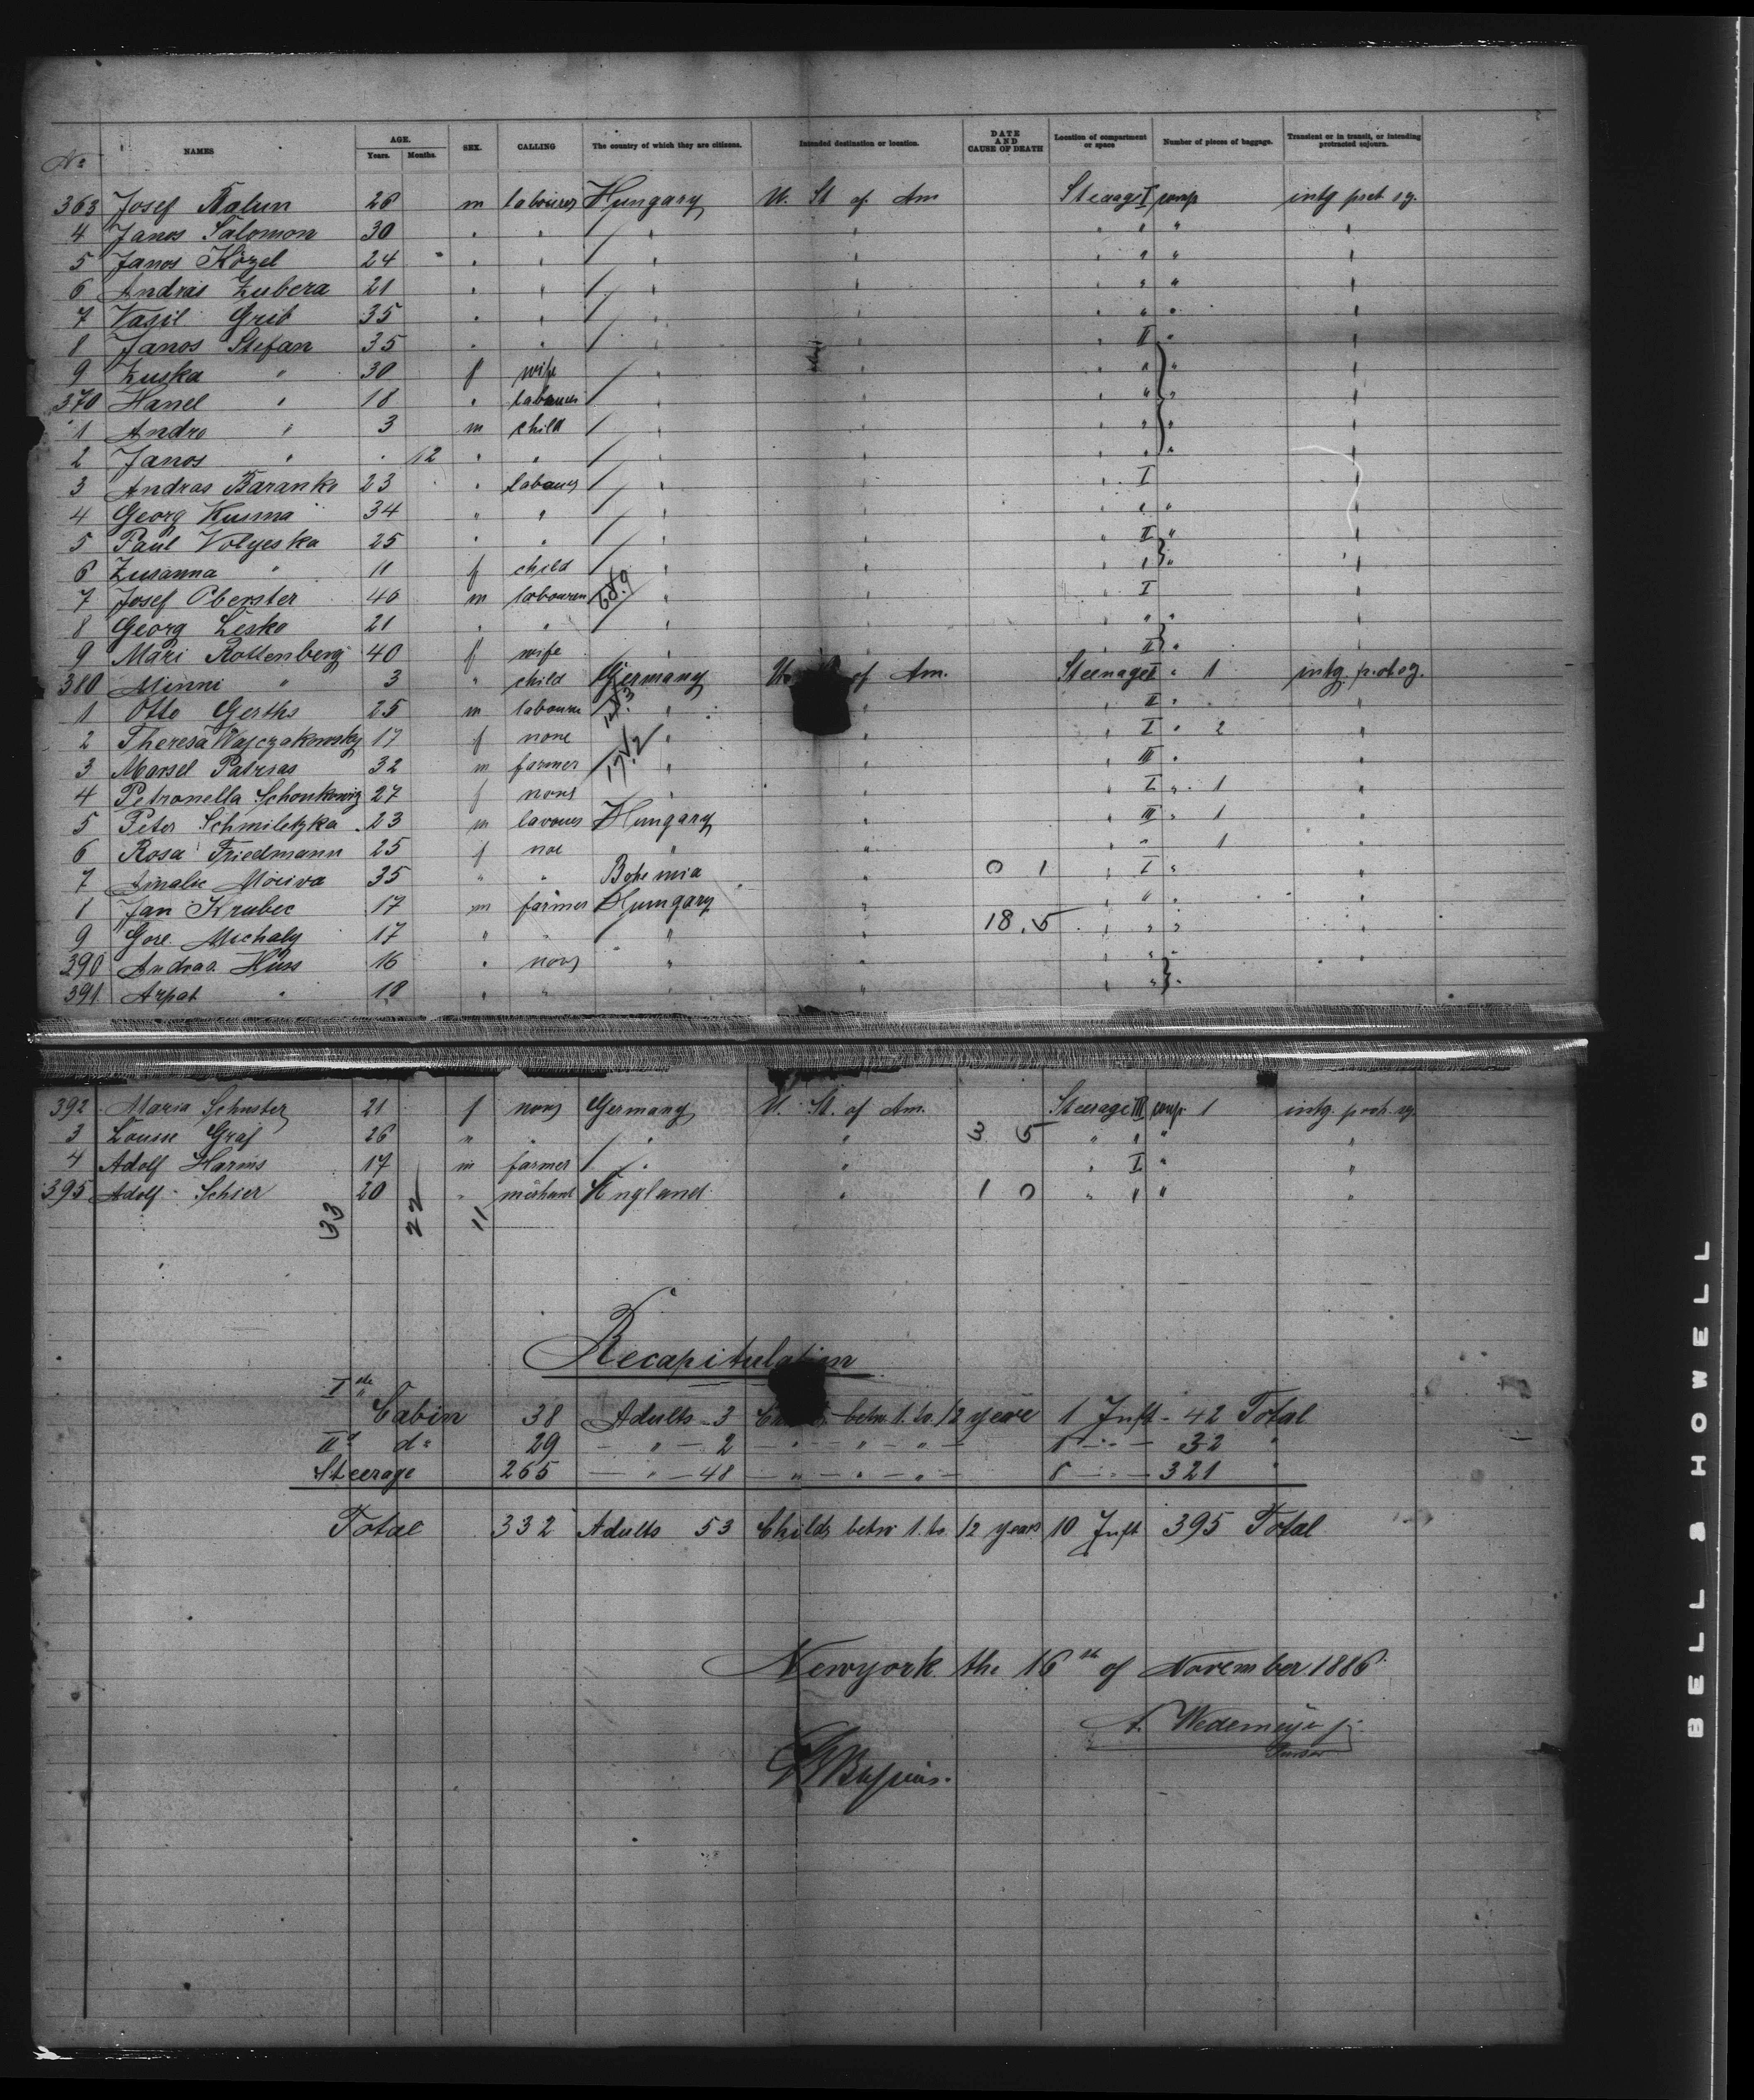 No NAMES AGE. Years. Months. SEX. CALLING The country of which they are citizens. Intended destination or location. DATE AND CAUSE OF DEATH Location of compartment or space Number of pieces of baggage. Transient or in transit, or intending protracted sojourn.
363 Josef 26 m labourer Hungary U. St of Am Steerage I comp intg prot. sg.
4 Janos Salomon 30 " " " " " " " "
5 Janos Közel 24 " " " " " " " "
6 Andräs Zubera 21 " " " " " " " "
7 Vasil Grib 35 " " " " " " " "
8 Janos Stefan 35 " " " " " II " "
9 Zuska " 30 f wife " " " " " "
370 Hanel " 18 " labourer " " " " " "
1 Andro " 3 m child " " " " " "
2 Janos " 12 " " " " " " " "
3 Andras Baranko 23 " labourer " " " I "
4 Georg Kusma 34 " " " " " " " "
5 Paul Volyeska 25 " " " " " II " "
6 Zusanna " 11 f child " " " " " "
7 Josef Oberster 40 m labourer 68.9 " " " I "
8 Georg Lesko 21 " " " " " " " "
9 Mari Rottenberg 40 f wife " " " II " "
380 Minni " 3 " child Germany of Am. Steerage I " 1 intg. prot. sg.
1 Otto Gerths 25 m labourer " " " II " "
2 Theresa Wajczakowsky 17 f none " " " I " 2 "
3 Marsel Patrias 32 m farmer " " " III " "
4 Petronella Schonkowig 27 f none " " " I " 1 "
5 Peter Schmiletzka 23 m Hungary " " III " 1 "
6 Rosa Friedmann 25 f " " " " 1 "
7 Amalie 35 " " Bohemia " 0 1 " I " "
Jan Krubec 17 m farmer Hungary " " " " "
9 Michaly 17 " " " " 18.5 " " " "
390 Andras Huss 16 " none " " " " " "
391 Arpat " 18 " " " " " " "
392 Maria Schuster 21 f none Germany U. St. of Am. Steerage III comp. 1 intg. prot. sg.
3 Louise Graf 26 " " " " 3 5 " " " "
4 Adolf Harms 17 m farmer " " " I " "
395 Adolf Schier 20 " England " 1 0 " " " "
33 22 11
Recapitulation
I Cabin 38 Adults 3 betw. 1. to. 12 years 1 Inft - 42 Total
II d° 29 - " - 2 - " - " - " - 1 - " - 32 "
Steerage 265 - " - 48 - " - " - " - 8 - " - 321 "
Total 332 Adults 53 Childs betw 1. to. 12 years 10 Inft 395 Total
Newyork the 16th of November 1886
A. Wedemeyer jr.
Purser
BELL & HOWELL